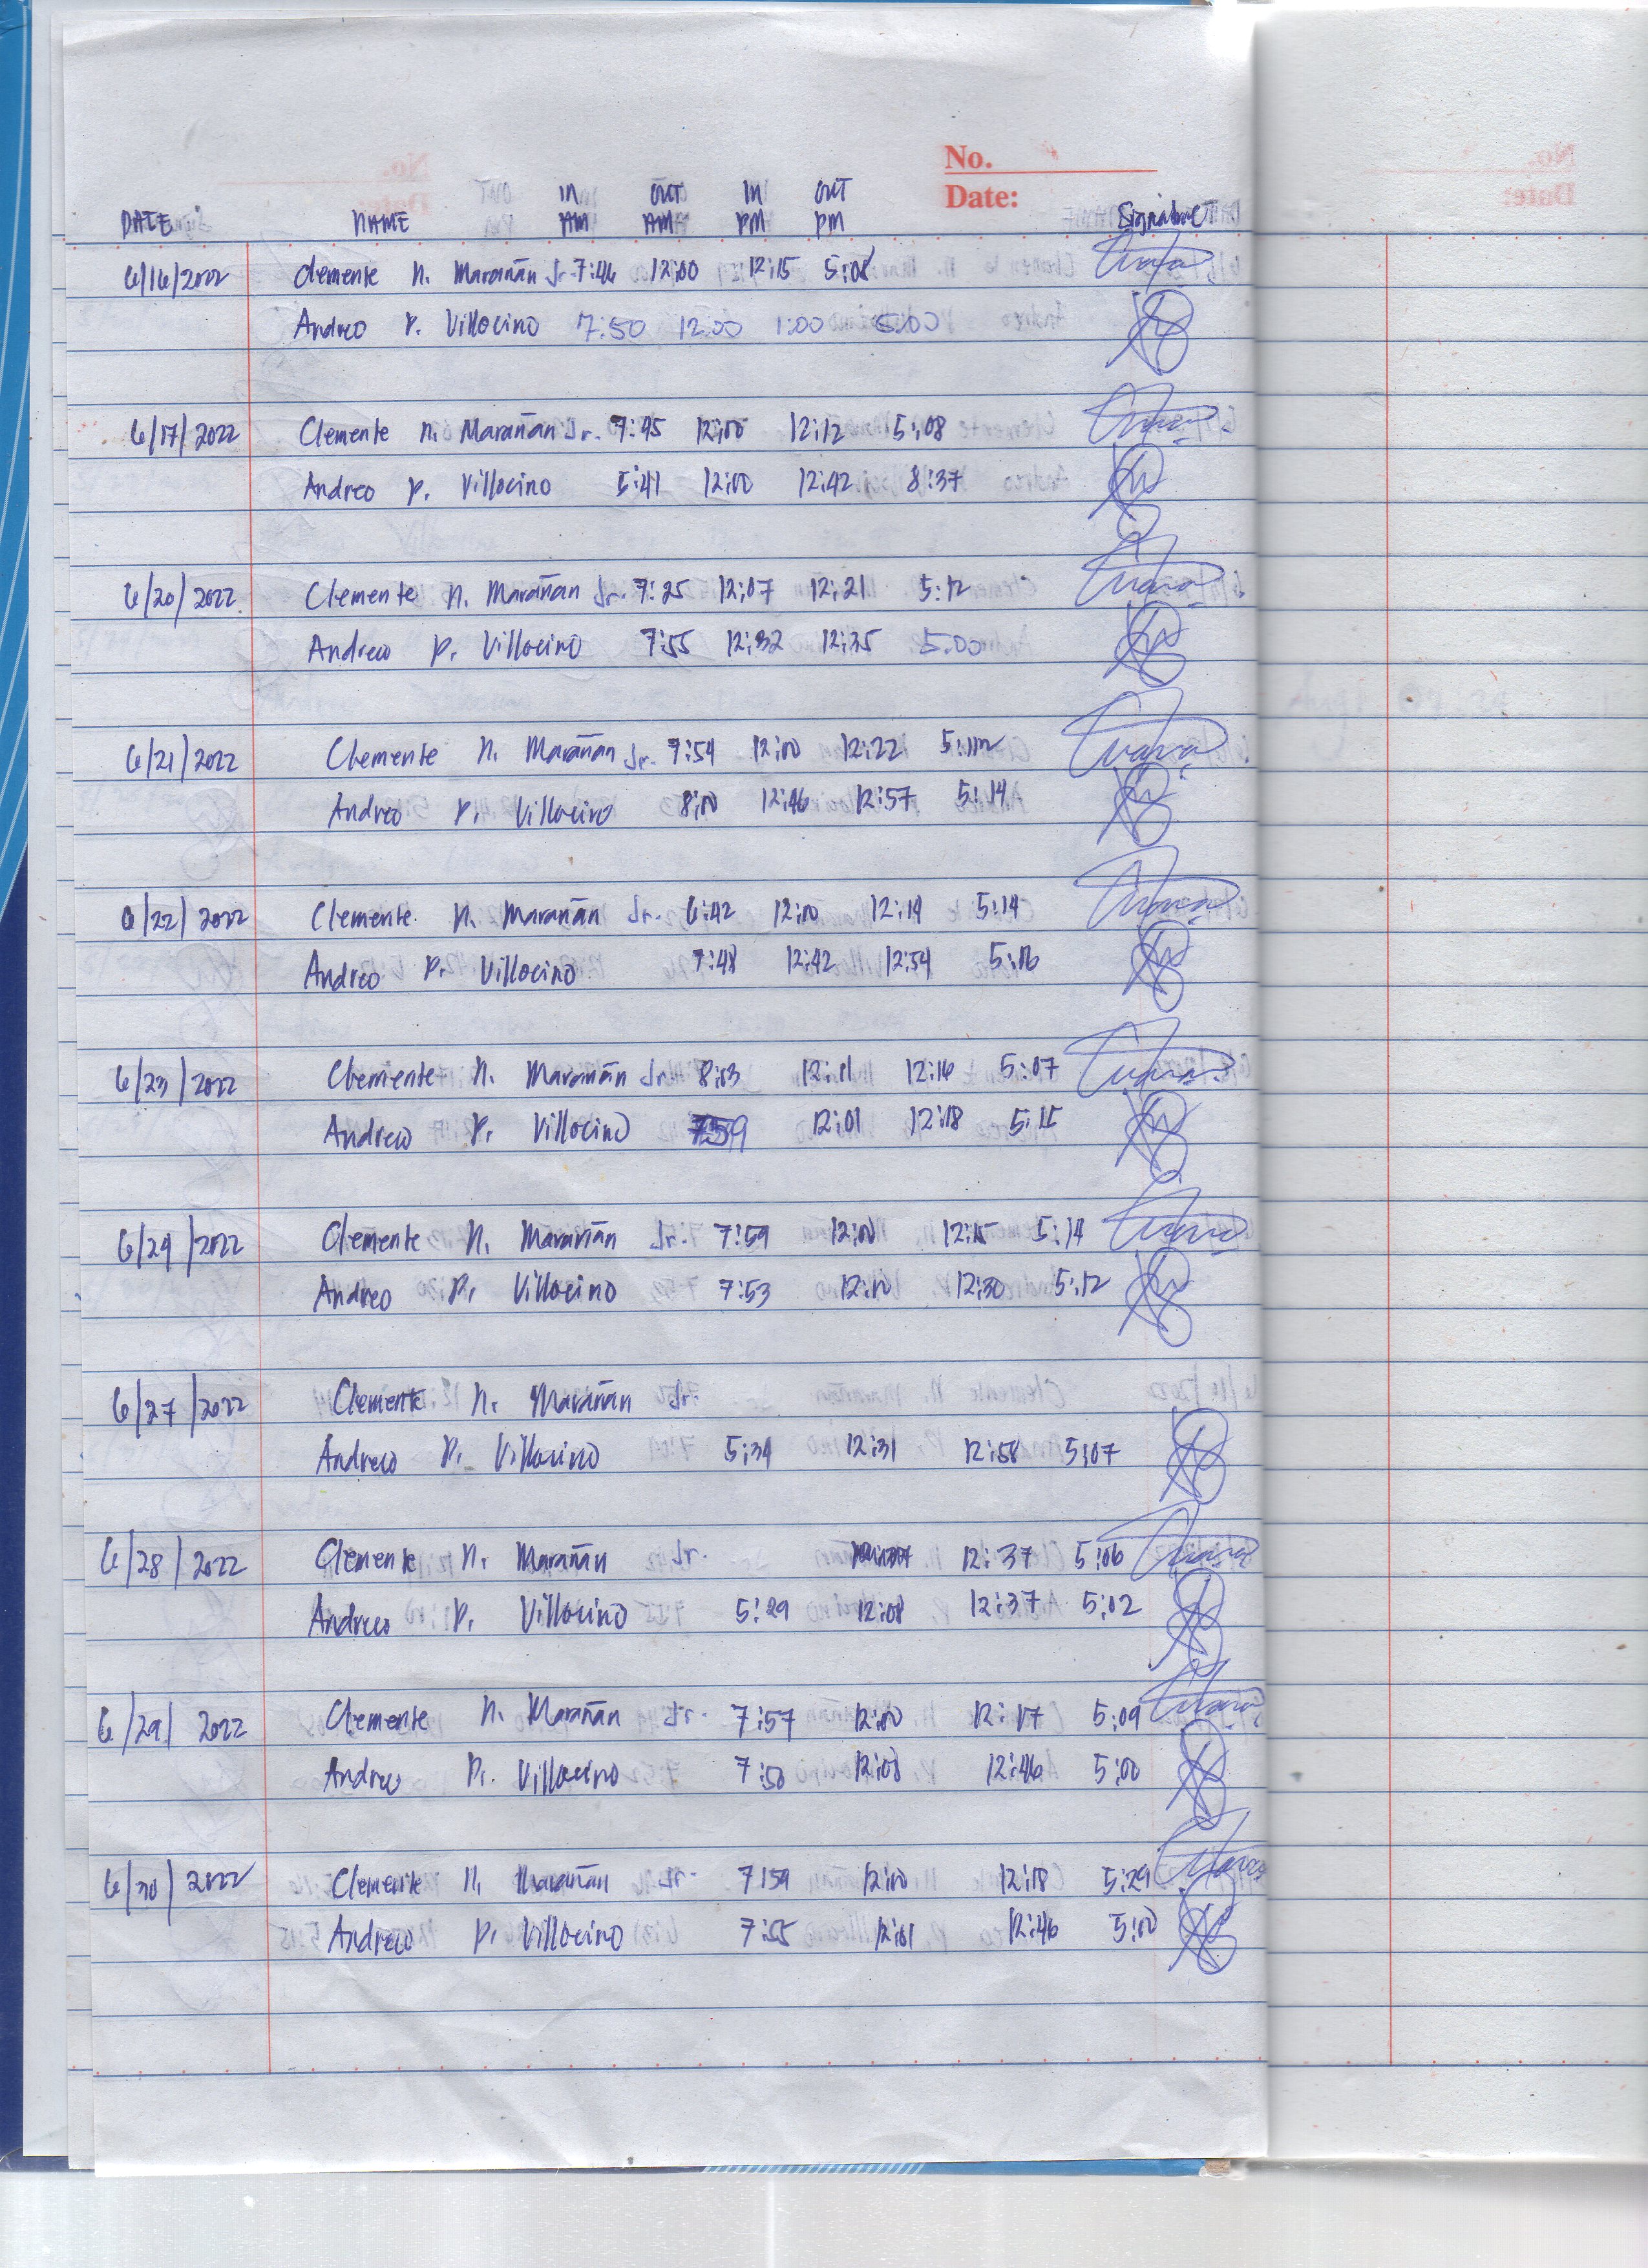 No.
Date:
IN OUT IN OUT
DATE NAME AM AM PM PM Signature
6/16/2022 Clemente N. Marañan Jr. 7:46 12:00 12:15 5:08
Andreo P. Villocino 7:50 12:00 1:00 5:00
6/17/2022 Clemente N. Marañan Jr. 7:45 12:00 12:12 5:08
Andreo P. Villocino 5:41 12:00 12:42 8:37
6/20/2022 Clemente N. Marañan Jr. 7:25 12:07 12:21 5:12
Andreo P. Villocino 7:55 12:32 12:35 5:00
6/21/2022 Clemente N. Marañan Jr. 7:54 12:00 12:22
Andreo P. Villocino 8:00 12:46 12:57 5:14
6/22/2022 Clemente N. Marañan Jr. 6:42 12:00 12:14 5:14
Andreo P. Villocino 7:48 12:42 12:54 5:06
6/23/2022 Clemente N. Marañan Jr. 8:03 12:11 12:16 5:07
Andreo P. Villocino 759 12:01 12:18 5:15
6/24/2022 Clemente N. Marañan Jr. 7:59 12:00 12:15 5:14
Andreo P. Villocino 7:53 12:10 12:30 5:12
6/27/2022 Clemente N. Marañan Jr.
Andreo P. Villocino 5:34 12:31 12:58 5:07
6/28/2022 Clemente N. Marañan Jr. 12:37 5:06
Andreo P. Villocino 5:29 12:08 12:37 5:02
6/29/2022 Clemente N. Marañan Jr. 7:57 12:00 12:17 5:09
Andreo P. Villocino 7:50 12:08 12:46 5:00
6/30/2022 Clemente N. Marañan Jr. 7:59 12:00 12:18 5:29
Andreo P. Villocino 7:55 12:01 12:46 5:00